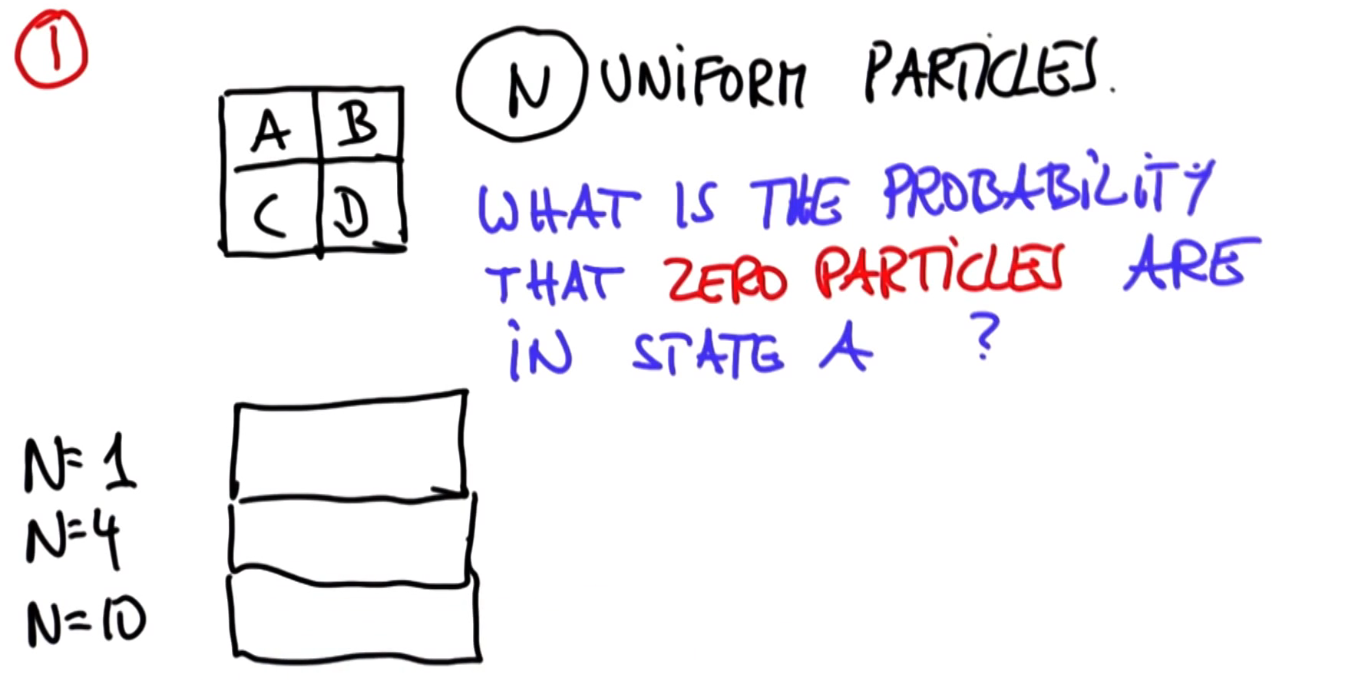 1
N UNIFORM PARTICLES.
A B
C D
WHAT IS THE PROBABILITY
THAT ZERO PARTICLES ARE
IN STATE A ?
N=1
N=4
N=10